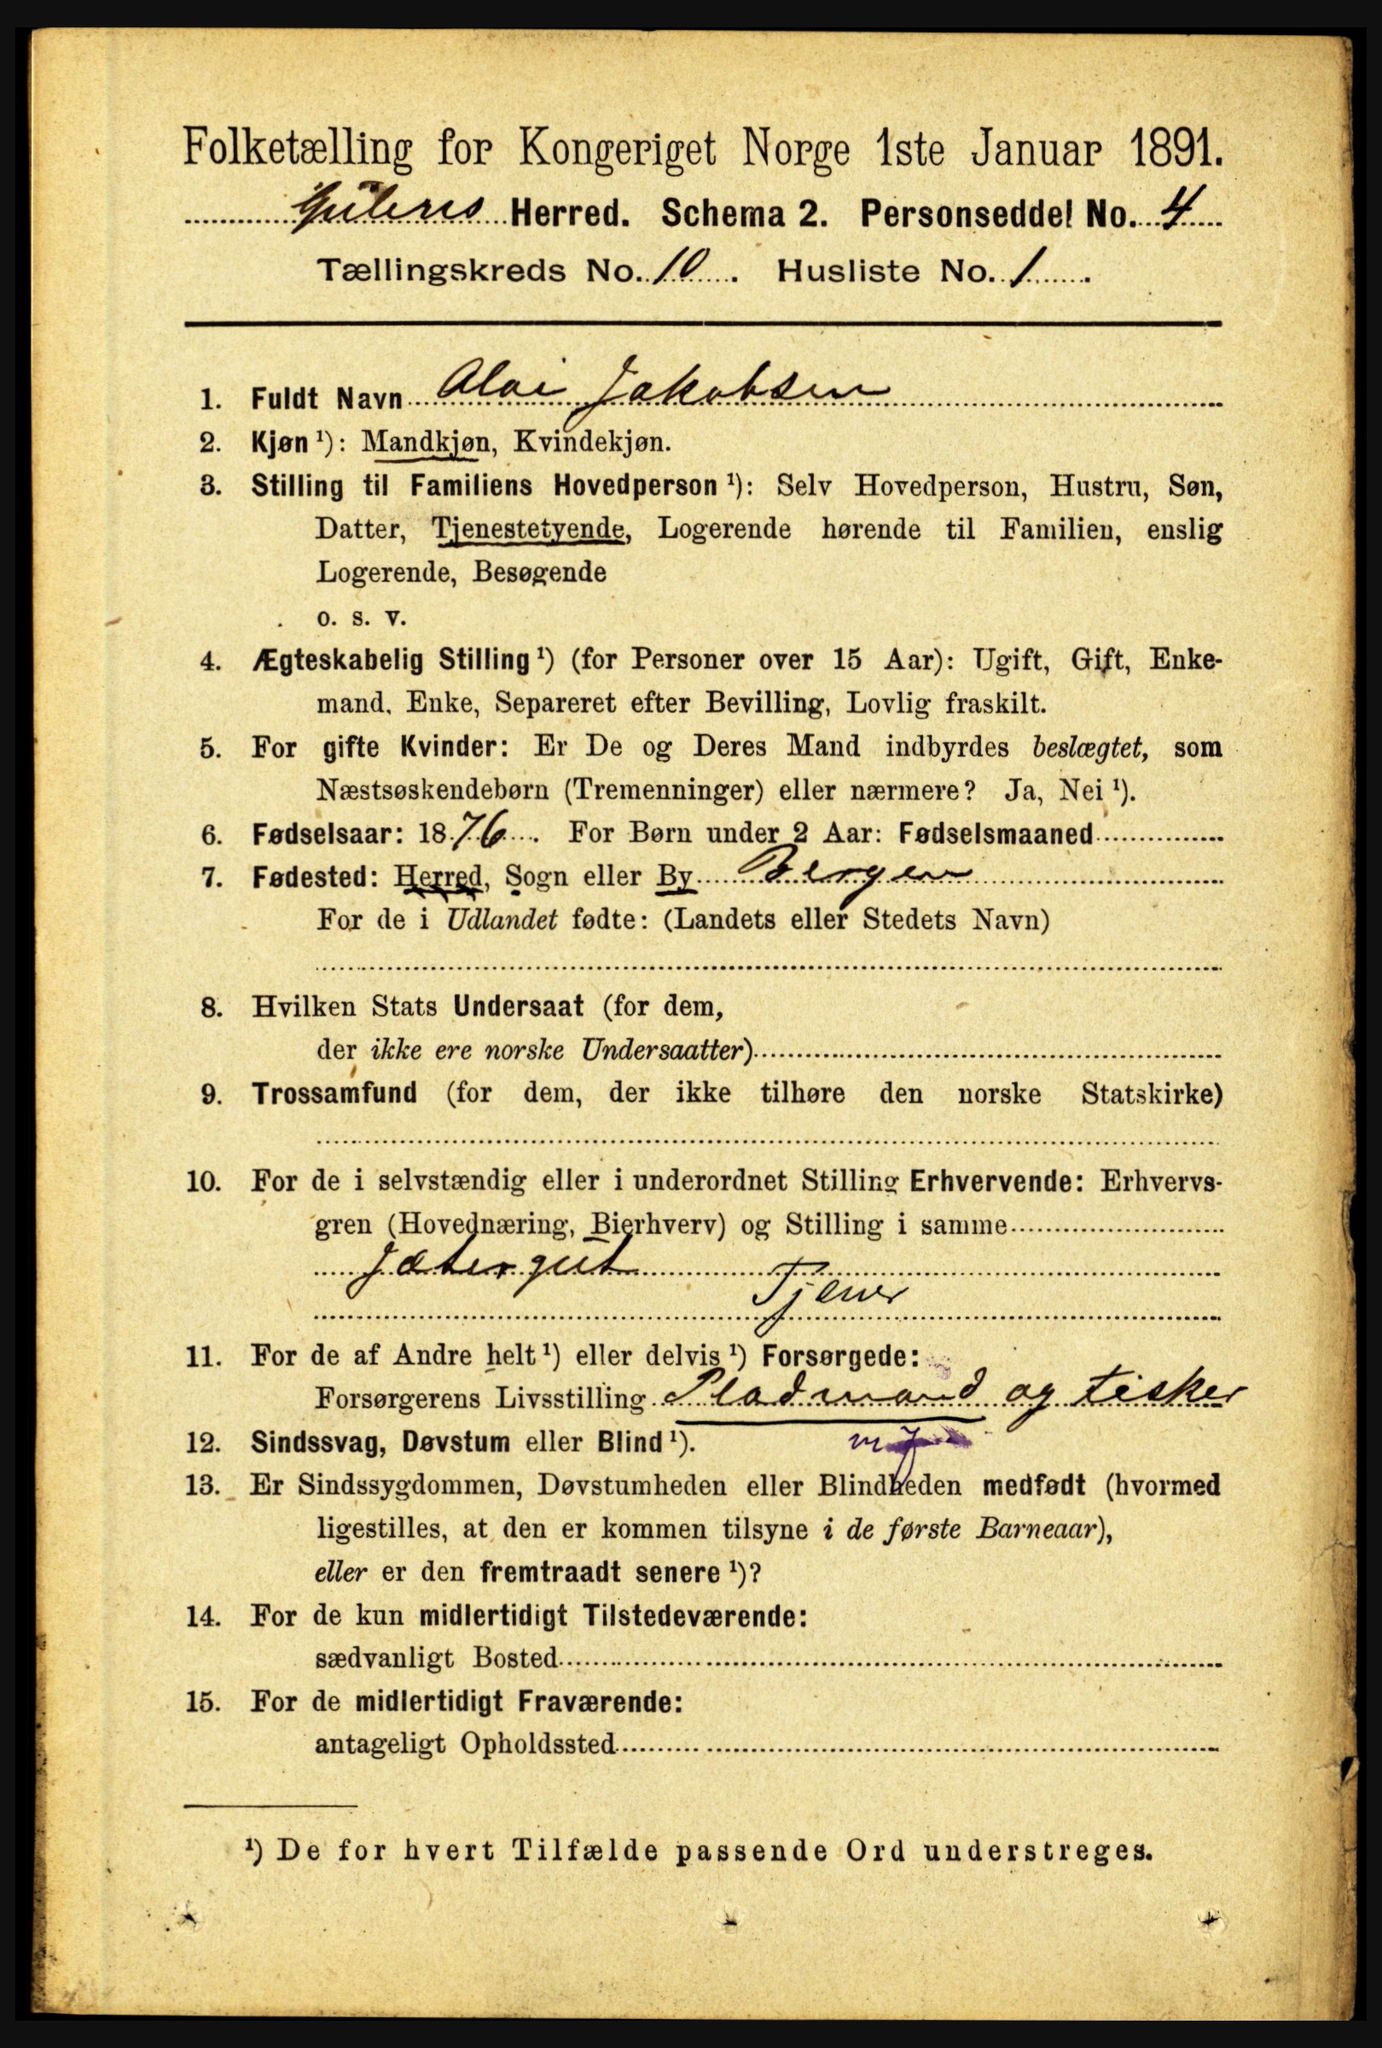 Folketælling for Kongeriget Norge 1ste Januar 1891.
Gulens Herred. Schema 2. Personseddel No. 4
Tællingskreds No. 10. Husliste No. 1.
1. Fuldt Navn Jakobsen
2. Kjøn ¹): Mandkjøn, Kvindekjøn.
3. Stilling til Familiens Hovedperson ¹): Selv Hovedperson, Hustru, Søn,
Datter, Tjenestetyende, Logerende hørende til Familien, enslig
Logerende, Besøgende
o. s. v.
4. Ægteskabelig Stilling ¹) (for Personer over 15 Aar): Ugift, Gift, Enke-
mand, Enke, Separeret efter Bevilling, Lovlig fraskilt.
5. For gifte Kvinder: Er De og Deres Mand indbyrdes beslægtet, som
Næstsøskendebørn (Tremenninger) eller nærmere? Ja, Nei ¹).
6. Fødselsaar: 1876. For Børn under 2 Aar: Fødselsmaaned
7. Fødested: Herred, Sogn eller By Bergen
For de i Udlandet fødte: (Landets eller Stedets Navn)
8. Hvilken Stats Undersaat (for dem,
der ikke ere norske Undersaatter)
9. Trossamfund (for dem, der ikke tilhøre den norske Statskirke)
10. For de i selvstændig eller i underordnet Stilling Erhvervende: Erhvervs-
gren (Hovednæring, Bierhverv) og Stilling i samme
Jætergut
Tjener
11. For de af Andre helt ¹) eller delvis ¹) Forsørgede:
Forsørgerens Livsstilling Pladmand og fisker
12. Sindssvag, Døvstum eller Blind ¹).
13. Er Sindssygdommen, Døvstumheden eller Blindheden medfødt (hvormed
ligestilles, at den er kommen tilsyne i de første Barneaar),
eller er den fremtraadt senere ¹)?
14. For de kun midlertidigt Tilstedeværende:
sædvanligt Bosted
15. For de midlertidigt Fraværende:
antageligt Opholdssted
¹) De for hvert Tilfælde passende Ord understreges.